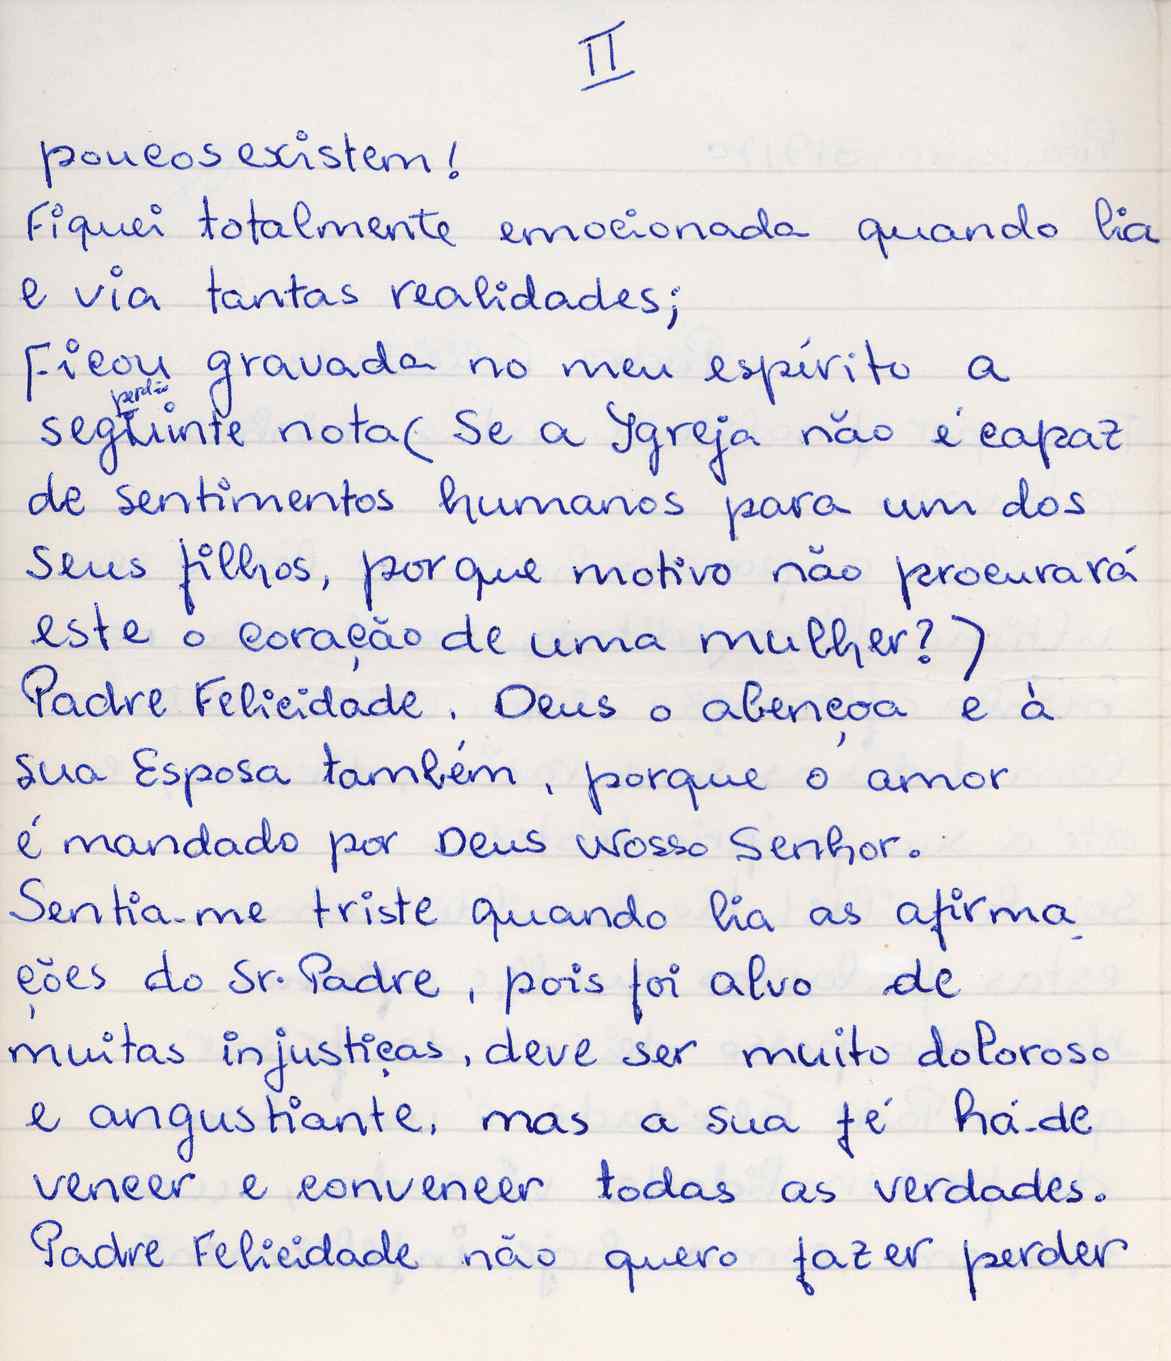 II
poucos existem!
Fiquei totalmente emocionada quando lia
e via tantas realidades;
Ficou gravada no meu espírito a
perdão
seguinte nota ( Se a Ygreja não é capaz
de sentimentos humanos para um dos
seus filhos, por que motivo não procurará
este o coração de uma mulher? )
Padre Felicidade, Deus o abençoa e à
sua Esposa também, porque o amor
é mandado por Deus Nosso Senhor.
Sentia-me triste quando lia as afirma-
ções do Sr. Padre, pois foi alvo de
muitas injustiças, deve ser muito doloroso
e angustiante, mas a sua fé há-de
vencer e convencer todas as verdades.
Padre Felicidade não quero fazer perder